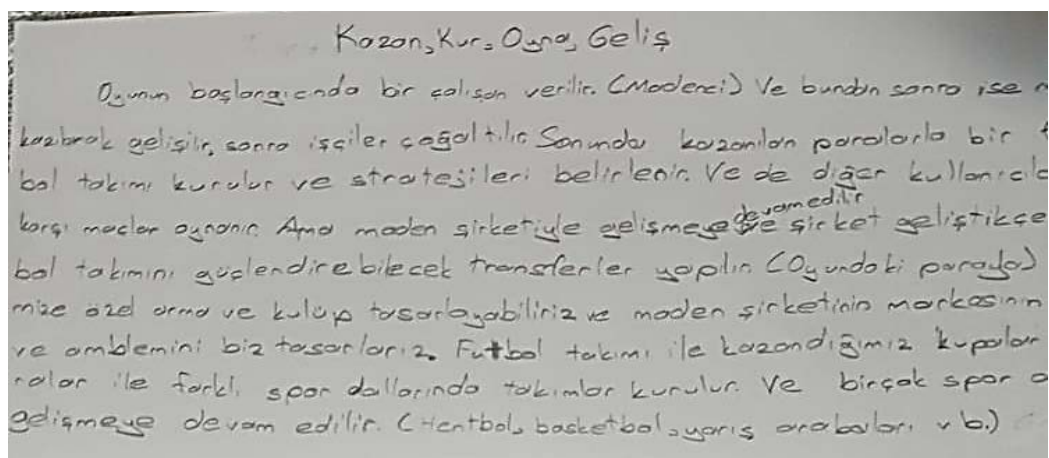 Kazan, Kur, Oyna, Geliş
Oyunun başlangıcında bir çalışan verilir. (Madenci) Ve bundan sonra ise
kazılarak gelişilir, sonra işçiler çoğaltılır. Sonunda kazanılan paralarla bir
bol takımı kurulur ve stratejileri belirlenir. Ve de diğer kullanıcıla
karşı maçlar oynanır. Ama maden şirketiyle gelişmeye devam edilir ve şirket geliştikçe
bol takımını güçlendirebilecek transferler yapılır. (Oyundaki parayla)
mize özel arma ve kulüp tasarlayabiliriz ve maden şirketinin markasının
ve amblemini biz tasarlarız. Futbol takımı ile kazandığımız kupalar
ralar ile farklı spor dallarında takımlar kurulur. Ve birçok spor
gelişmeye devam edilir. (Hentbol, basketbol, yarış arabaları vb.)